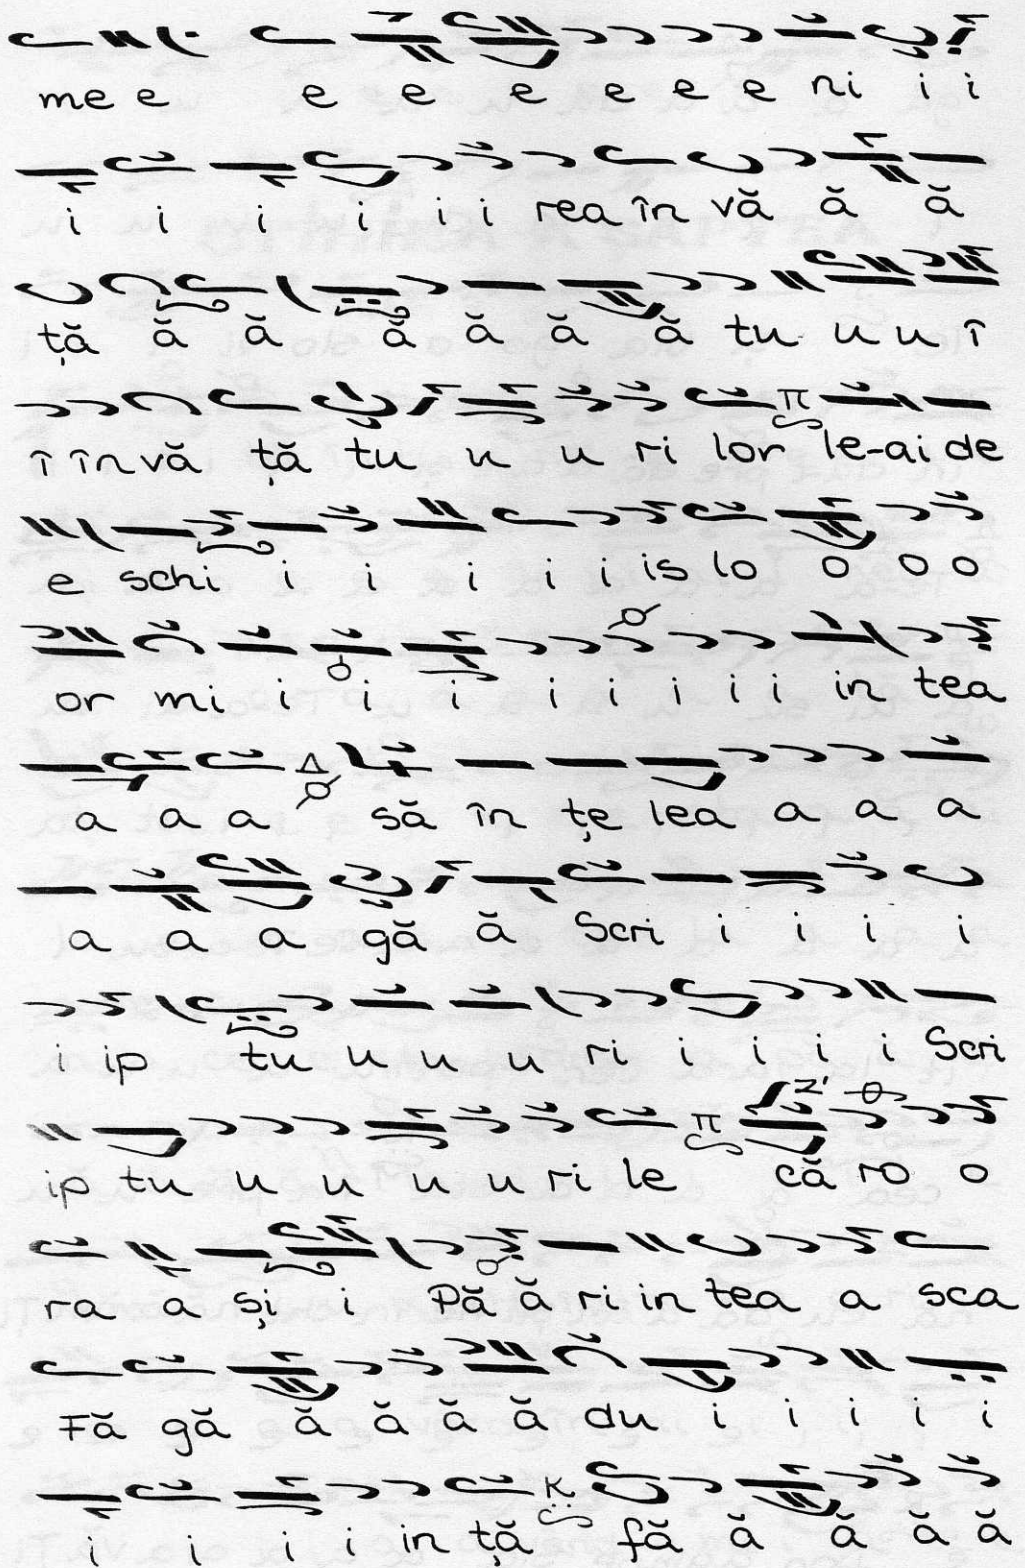 me e e e e e e e ni i i
i i i i i i rea în vă ă ă
ță ă ă ă ă ă ă tu u u î
î în vă ță tu u u ri lor le-ai de
e schi i i i i i is lo o o o
or mi i i i i i i i i in tea
a a a să în țe lea a a a
a a a gă ă Scri i i i i
i ip tu u u u ri i i i i Scri
ip tu u u u u ri le că ro o
ra a și i Pă ă ri in tea a sca
Fă gă ă ă ă ă du i i i i i
i i i i in ță fă ă ă ă ă